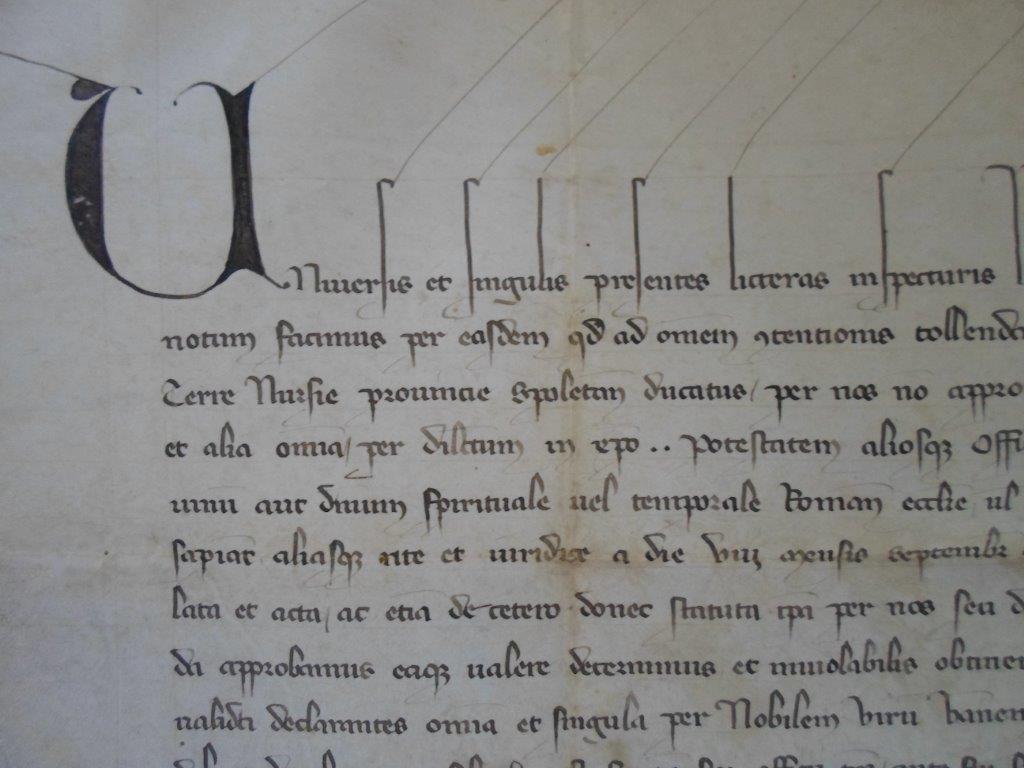 UNiuersis et singulis presentes licteras inspecturis
notum facimus per easdem qd ad omem ꝯtentionis tollend
Terre Nursie prouincie Spoletan ducatus / per nos no appro
et alia omia / per dilctum in xpo .. Potestatem aliosqʒ Offi
uiuu aut diuum spirituale uel temporale Roman ecclie ul
sapiat aliasqʒ rite et a die viij mensis septembr
lata et acta / ac etia de cetero donec statuta ipa per nos seu d
di approbamus eaqʒ ualere decernimus et inuiolabilis obtiner
ualidit declarantes omia et singula per Nobilem viru